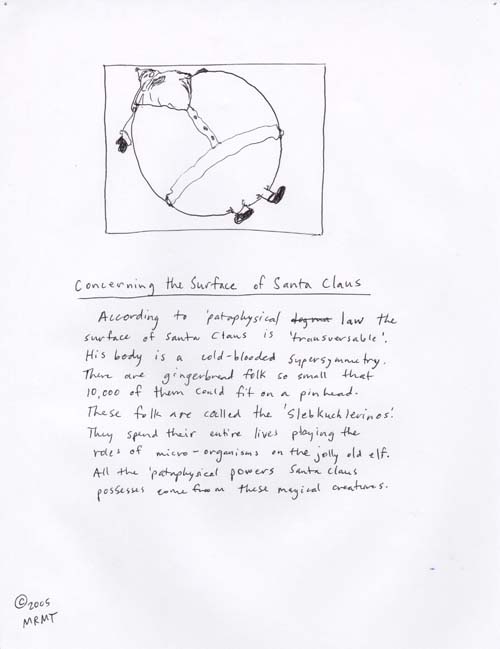 Concerning the Surface of Santa Claus
According to 'pataphysical dogma law the
surface of Santa Claus is 'transversable'.
His body is a cold-blooded supersymmetry.
There are gingerbread folk so small that
10,000 of them could fit on a pinhead.
These folk are called the 'Slebkuchlevinos'.
They spend their entire lives playing the
roles of micro-organisms on the jolly old elf.
All the 'pataphysical powers Santa Claus
possesses come from these magical creatures.
©2005
MRMT